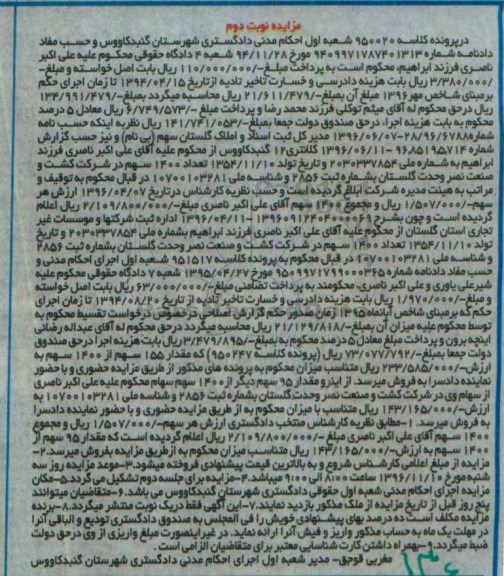 مزایده نوبت دوم
درپرونده کلاسه ۹۵۰۰۲۰ شعبه اول احکام مدنی دادگستری شهرستان گنبدکاووس و حسب مفاد
دادنامه شماره ۹۴۰۹۹۷۱۷۸۷۴۰۱۳۱۳ مورخ ۹۴/۱۱/۲۸ شعبه ۴ دادگاه حقوقی محکوم علیه علی اکبر
ناصری فرزند ابراهیم، محکوم است به پرداخت مبلغ -/۱۱۰/۰۰۰/۰۰۰ ریال بابت اصل خواسته و مبلغ-
/۳/۳۸۰/۰۰۰ ریال بابت هزینه دادرسی و خسارت تاخیر تادیه ازتاریخ ۱۳۹۴/۰۴/۱۵ تا زمان اجرای حکم
برمبنای شاخص مهر۱۳۹۶ مبلغ آن بمبلغ-/۲۱/۶۱۱/۴۷۹ ریال محاسبه میگردد بمبلغ-/۱۳۴/۹۹۱/۴۷۹
ریال درحق محکوم له آقای میثم توکلی فرزند محمد رضا و پرداخت مبلغ -/۶/۷۴۹/۵۷۳ ریال معادل ۵ درصد
محکوم به بابت هزینه اجرا، درحق صندوق دولت جمعا بمبلغ-/۱۴۱/۷۴۱/۰۵۳ ریال نظر به اینکه حسب نامه
شماره۲۸/۹۶/۶۷۸۸-۱۳۹۶/۰۶/۰۷ مدیر کل ثبت اسناد و املاک گلستان سهم (بی نام) و نیز حسب گزارش
شماره ۹۶۸۵۱۹۵۷۱۴-۱۳۹۶/۰۶/۱۱ کلانتری۱۲ گنبدکاووس از محکوم علیه آقای علی اکبر ناصری فرزند
ابراهیم به شماره ملی ۲۰۳۰۳۳۷۸۵۴ و تاریخ تولد ۱۳۵۴/۱۱/۱۰ تعداد ۱۴۰۰ سهم در شرکت کشت و
صنعت نصر وحدت گلستان بشماره ثبت ۲۸۵۶ و شناسه ملی ۱۰۷۰۰۱۰۳۲۸۱ در قبال محکوم به توقیف و
مراتب به هیئت مدیره شرکت ابلاغ گردیده است و حسب نظریه کارشناس درتاریخ ۱۳۹۶/۰۴/۰۷ ارزش هر
سهم-/۱/۵۰۷/۰۰۰ ریال و مجموع ۱۴۰۰ سهم آقای علی اکبر ناصری مبلغ-/۲/۱۰۹/۸۰۰/۰۰۰ ریال اعلام
گردیده است و چون بشرح ۱۳۹۶۰۹۱۲۴۰۴۰۰۰۰۶۹-۱۳۹۶/۰۴/۱۱ اداره ثبت شرکتها و موسسات غیر
تجاری استان گلستان از محکوم علیه آقای علی اکبر ناصری فرزند ابراهیم بشماره ملی ۲۰۳۰۳۳۷۸۵۴ و تاریخ
تولد ۱۳۵۴/۱۱/۱۰ تعداد ۱۴۰۰ سهم در شرکت کشت و صنعت نصر وحدت گلستان بشماره ثبت ۲۸۵۶
و شناسه ملی ۱۰۷۰۰۱۰۳۲۸۱ در قبال محکوم به پرونده کلاسه ۹۵۱۵۱۷ شعبه اول اجرای احکام مدنی و
حسب مفاد دادنامه شماره۹۵۰۹۹۷۱۷۹۹۰۰۰۳۶۵ مورخ ۱۳۹۵/۰۴/۲۷ شعبه ۷ دادگاه حقوقی محکوم علیه
شیرعلی یاوری و علی اکبر ناصری، محکومند به پرداخت تضامنی مبلغ-/۶۳/۰۰۰/۰۰۰ ریال بابت اصل خواسته
و مبلغ-/۱/۹۷۰/۰۰۰ ریال بابت هزینه دادرسی و خسارت تاخیر تادیه از تاریخ ۱۳۹۴/۰۸/۲۰ تا زمان اجرای
حکم که برمبنای شاخص آبانماه۱۳۹۵ زمان صدور حکم گزارش اصلاحی درخصوص درخواست تقسیط محکوم به
توسط محکوم علیه میزان آن بمبلغ-/۲۱/۱۲۹/۸۱۸ ریال محاسبه میگردد درحق محکوم له آقای عبداله رضائی
اینچه برون و پرداخت مبلغ معادل ۵ درصد محکوم به بمبلغ-/۳/۴۷۹/۸۹۵ ریال بابت هزینه اجرا درحق صندوق
دولت جمعا بمبلغ-/۷۳/۰۷۷/۷۹۲ ریال (پرونده کلاسه ۹۵۰۲۴۷) که مقدار ۱۵۵ سهم از ۱۴۰۰ سهم به
ارزش-/۲۳۳/۵۸۵/۰۰۰ ریال متناسب میزان محکوم به پرونده های مذکور از طریق مزایده حضوری و با حضور
نماینده دادسرا به فروش میرسد. از اینرو مقدار ۹۵ سهم دیگر از ۱۴۰۰ سهم سهام محکوم علیه علی اکبر ناصری
از سهام وی در شرکت کشت و صنعت نصر وحدت گلستان بشماره ثبت ۲۸۵۶ و شناسه ملی ۱۰۷۰۰۱۰۳۲۸۱ به
ارزش-/۱۴۳/۱۶۵/۰۰۰ ریال متناسب با میزان محکوم به از طریق مزایده حضوری و با حضور نماینده دادسرا
به فروش میرسد. ۱-مطابق نظریه کارشناس منتخب دادگستری ارزش هر سهم-/۱/۵۰۷/۰۰۰ ریال و مجموع
۱۴۰۰ سهم آقای علی اکبر ناصری مبلغ -/۲/۱۰۹/۸۰۰/۰۰۰ ریال اعلام گردیده است که مقدار ۹۵ سهم از
۱۴۰۰ سهم به ارزش-/۱۴۳/۱۶۵/۰۰۰ ریال متناسب میزان محکوم به از طریق مزایده بفروش میرسد.۲-
مزایده از مبلغ اعلامی کارشناس شروع و به بالاترین قیمت پیشنهادی فروخته میشود.۳-موعد مزایده روز سه
شنبه مورخ ۱۳۹۶/۱۱/۱۰ ساعت ۸:۰۰ الی ۹:۰۰ میباشد.۴-مزایده برای جلسه دوم تشکیل می گردد.۵-مکان
مزایده اجرای احکام مدنی شعبه اول حقوقی دادگستری شهرستان گنبدکاووس می باشد.۶-متقاضیان میتوانند
پنج روز قبل از تاریخ مزایده از ملک مذکور بازدید نمایند.۷-این آگهی فقط دریک نوبت منتشر میگردد.۸-برنده
مزایده مکلف است ده درصد بهای پیشنهادی خویش را فی المجلس به صندوق دادگستری تودیع و الباقی آنرا
در مهلت یک ماه به حساب مذکور واریز و فیش آنرا ارائه نماید. در غیراینصورت مبلغ واریزی از وی درحق دولت
ضبط میگردد.۹-بهمراه داشتن کارت شناسایی معتبر برای متقاضیان الزامی است.
مغربی قوجق- مدیر شعبه اول اجرای احکام مدنی دادگستری شهرستان گنبدکاووس